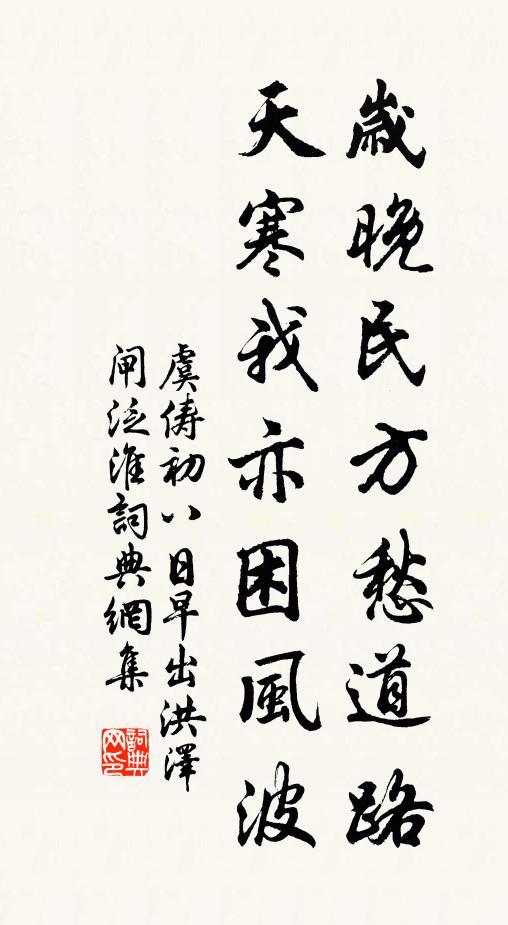 歲晚民方愁道路
天寒我亦困風波
虞儔初八日早出洪澤
閘泛淮詞典網集
詞典
网印